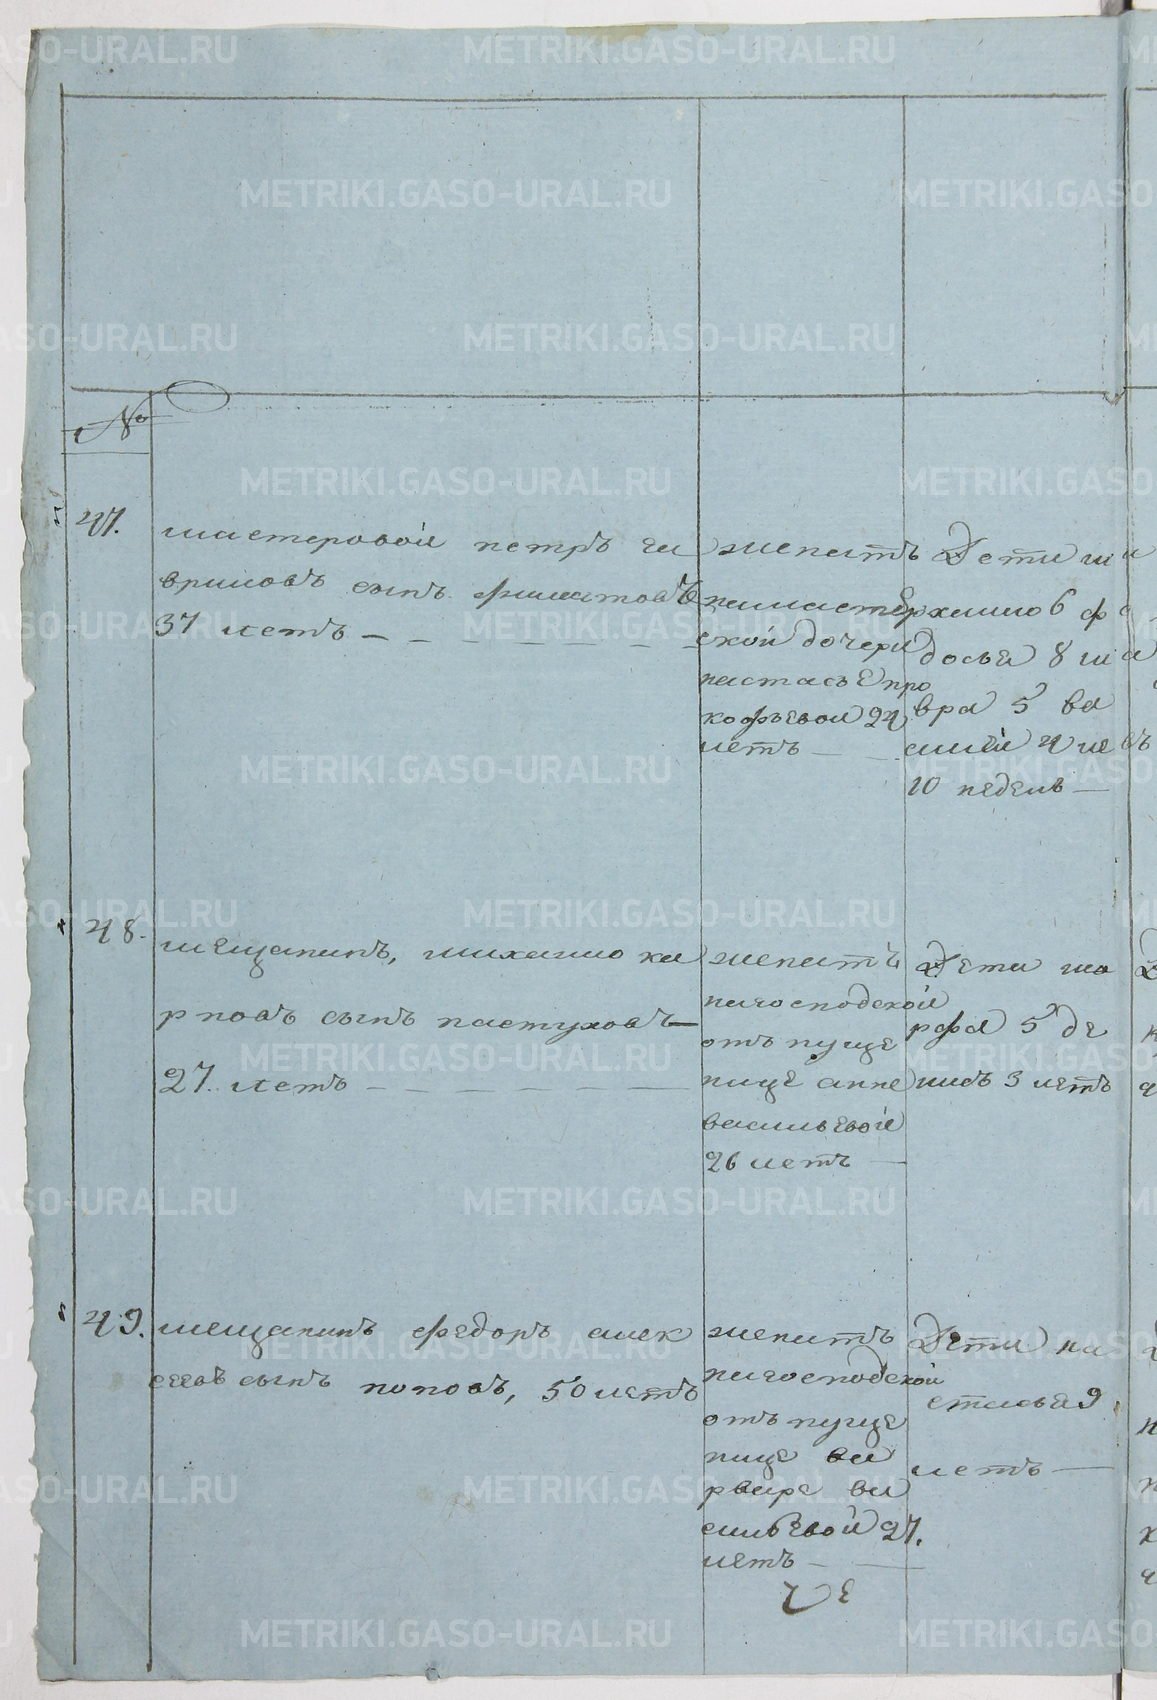 №
47.
мастеровой петръ га
вриловъ сынъ филатовъ
37 летъ
женатъ
на мастер
ской дочери
настасье про
кофьевой 24
летъ
Дети ми
хаило 6 ф
досья 8 ма
вра 5 ва
силей 4 не
10 недель
48.
мещанинъ, михаило ка
рповъ сынъ пастуховъ
27 летъ
женатъ
на господской
отъпуще
нице анне
васильевой
26 летъ
Дети ма
рфа 5 де
нисъ 3 летъ
49.
мещанинъ федоръ алек
сеевъ сынъ поповъ, 50 летъ
женатъ
на господской
отъпуще
нице ва
рваре ва
сильевой 27.
летъ
Дети на
сталья 9
летъ
METRIKI.GASO-URAL.RU